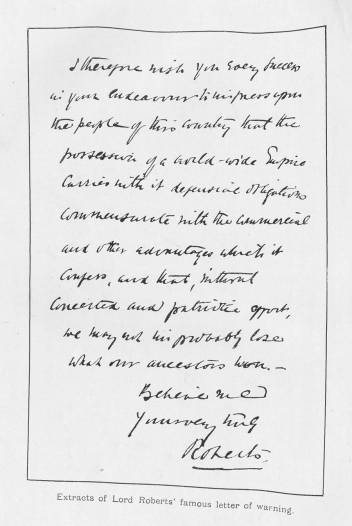 I therefore wish you every success
in your endeavour to impress upon
the people of this country that the
possession of a world-wide Empire
carries with it defensive obligations
commensurate with the commercial
and other advantages which it
confers, and that, without
concerted and patriotic effort,
we may not improbably lose
what our ancestors won. —
Believe me
Yours very truly
Roberts.
Extracts of Lord Roberts' famous letter of warning.